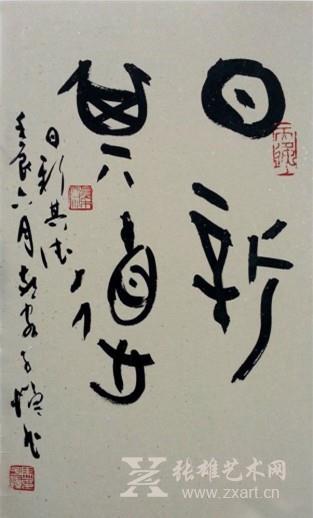 日新
其德
日新其德
壬辰六月
张雄艺术网
www.zxart.cn